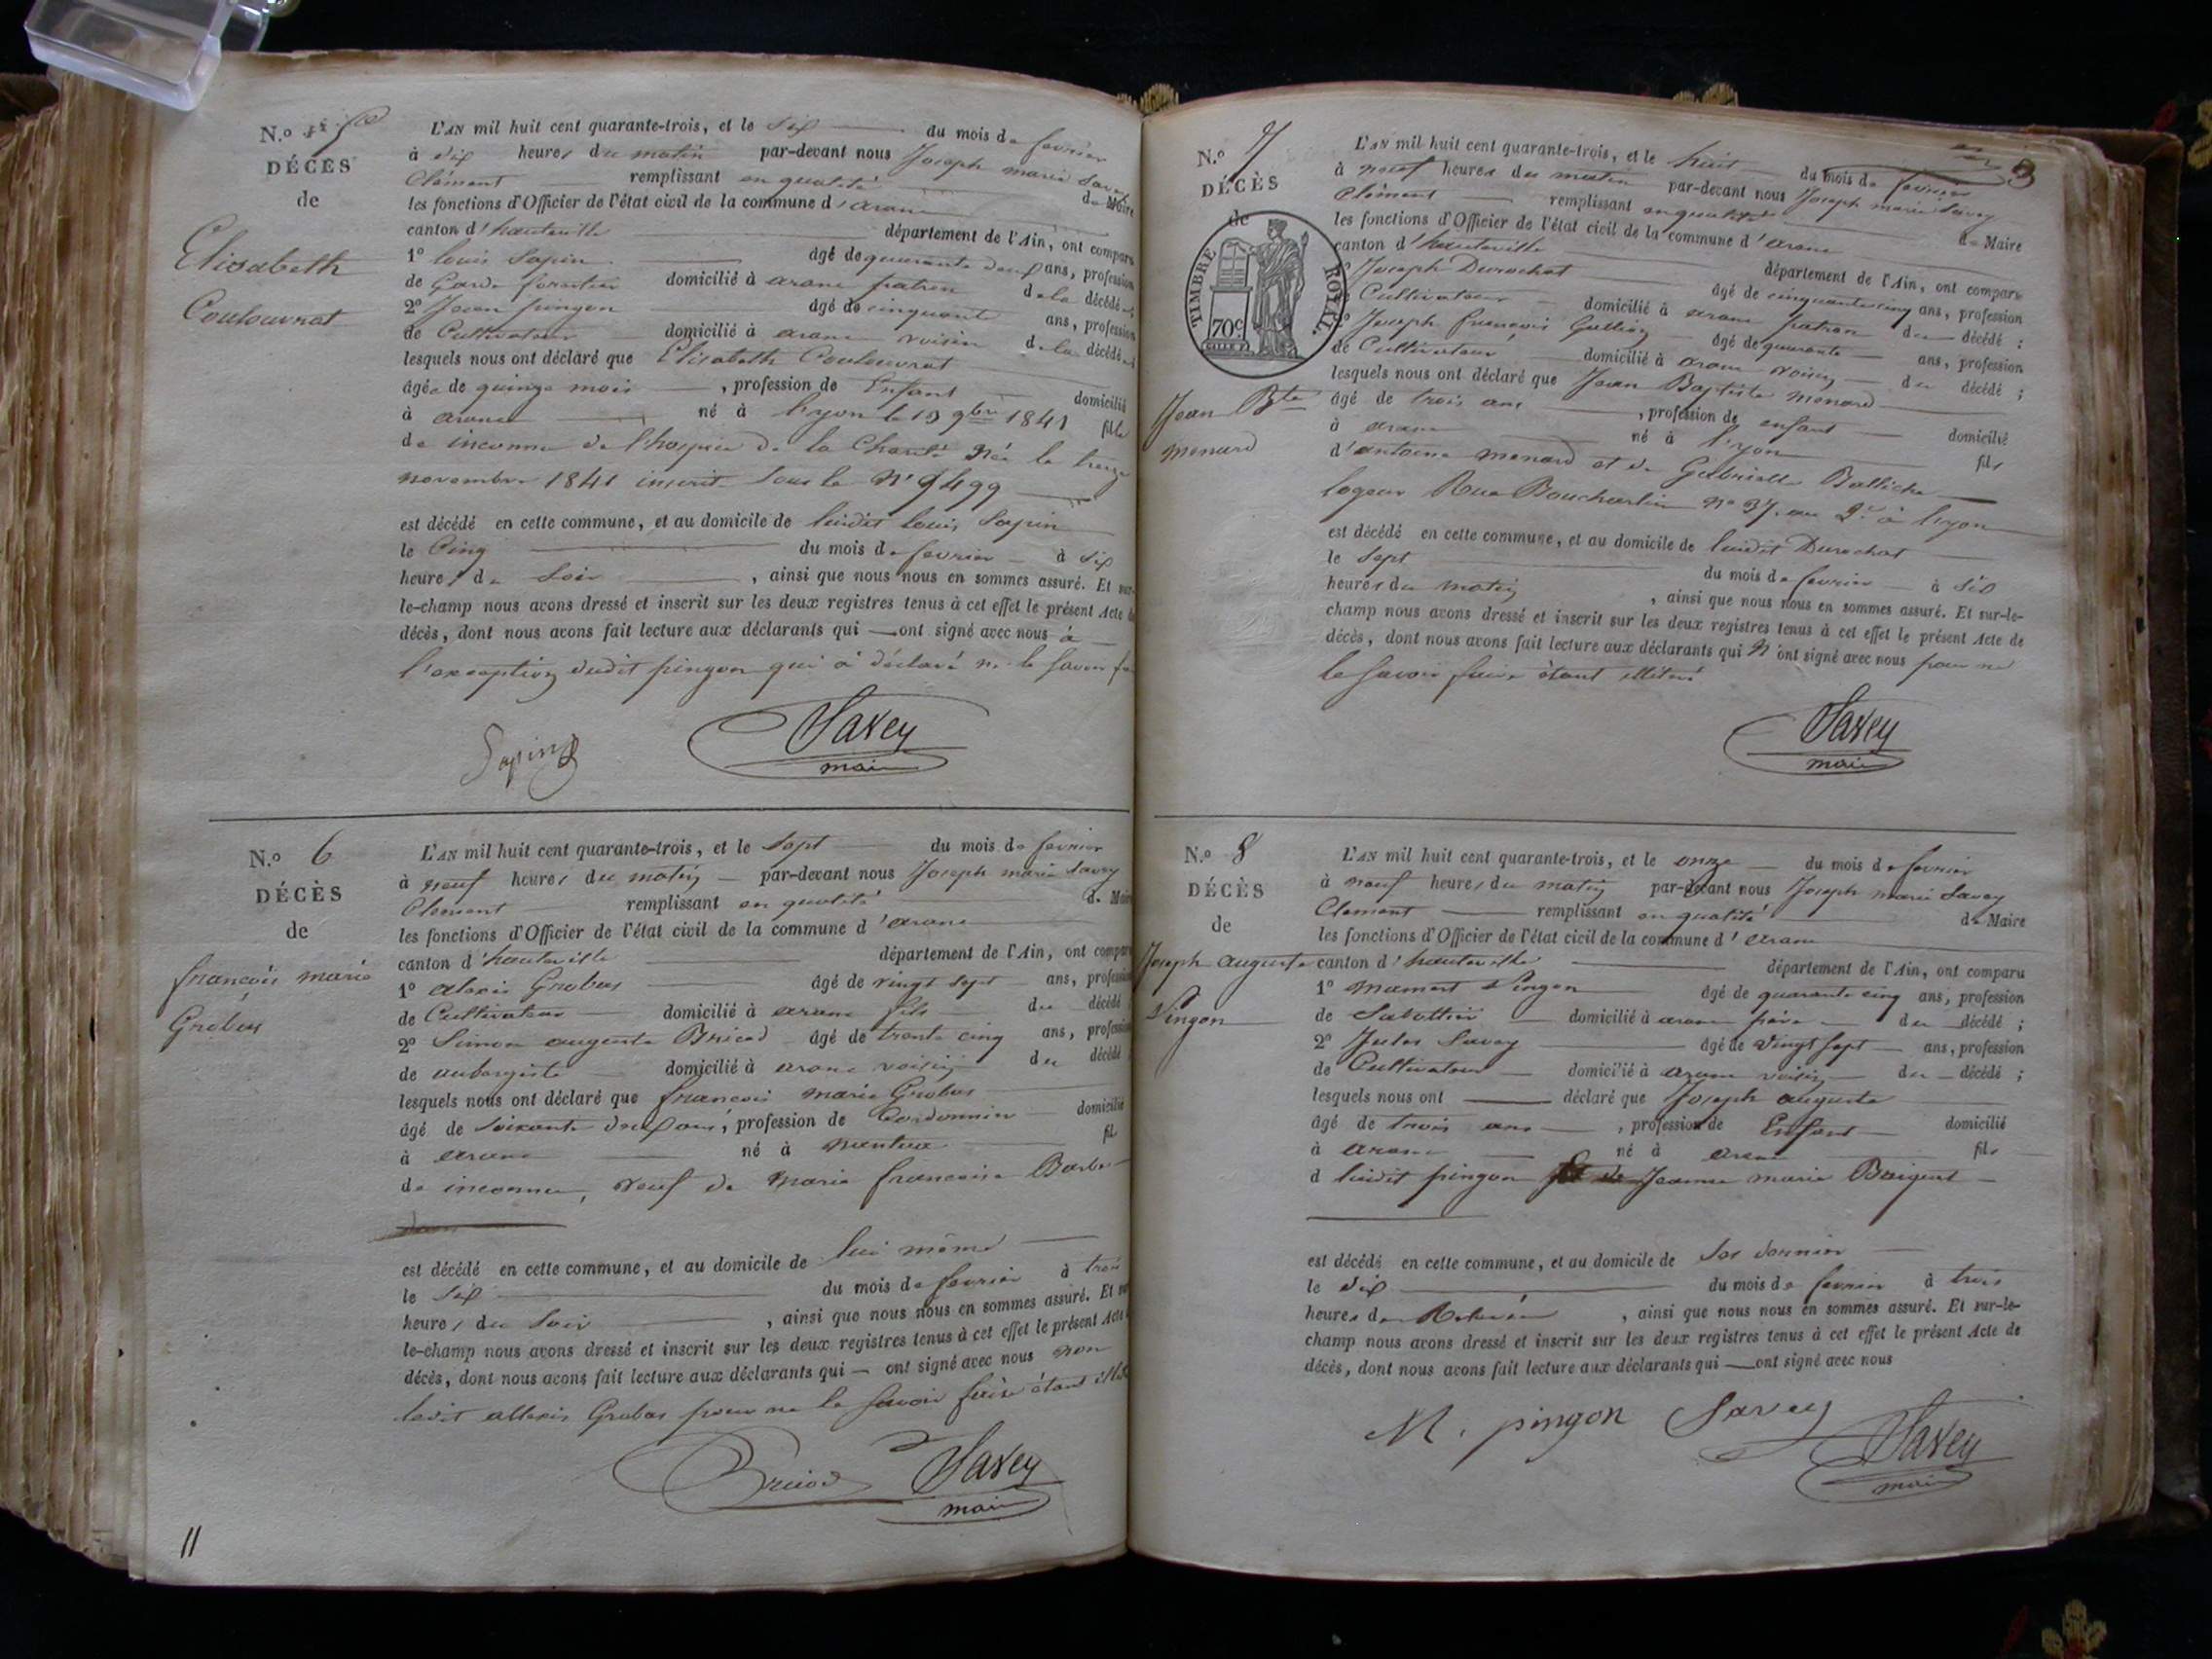 N.º 5
DÉCÈS
de
Elisabeth
Coulouvrat
L'AN mil huit cent quarante-trois, et le six du mois de fevrier
à dix heures du matin par-devant nous Joseph marie Savey
Clément remplissant en qualité de Maire
les fonctions d'Officier de l'état civil de la commune d'aranc
canton d'hauteville département de l'Ain, ont comparu
1º louis Sapin âgé de quarante deux ans, profession
de Garde forestier domicilié à aranc patron de la décédée
2º Jean pingon âgé de cinquante ans, profession
de Cultivateur domicilié à aranc voisin de la décédée
lesquels nous ont déclaré que Elisabeth Coulouvrat
âgée de quinze mois, profession de Enfant domicilié
à aranc né à lyon le 13 9bre 1841 fille
de inconnu de l'hospice de la Charité Née le treize
novembre 1841 inscrit sous le Nº 9499
est décédé en cette commune, et au domicile de ludit louis Sapin
le Cinq du mois de fevrier à six
heures du Soir, ainsi que nous nous en sommes assuré. Et sur-
le-champ nous avons dressé et inscrit sur les deux registres tenus à cet effet le présent Acte de
décès, dont nous avons fait lecture aux déclarants qui ont signé avec nous à
l'exception dudit pingon qui a déclaré ne le savoir
Sapin Savey
maire
N.º 6
DÉCÈS
de
francois marie
Grobas
L'AN mil huit cent quarante-trois, et le Sept du mois de fevrier
à neuf heures du matin par-devant nous Joseph marie Savey
Clément remplissant en qualité de Maire
les fonctions d'Officier de l'état civil de la commune d'aranc
canton d'hauteville département de l'Ain, ont comparu
1º alexis Grobas âgé de vingt sept ans, profession
de Cultivateur domicilié à aranc fils du décédé
2º Simon auguste Bricod âgé de trente cinq ans, profession
de aubergiste domicilié à aranc voisin du décédé
lesquels nous ont déclaré que francois marie Grobas
âgé de soixante deux ans, profession de Cordonnier domicilié
à aranc né à nantua fils
de inconnu, veuf de Marie francoise
est décédé en cette commune, et au domicile de lui même
le six du mois de fevrier à trois
heures du soir, ainsi que nous nous en sommes assuré. Et sur
le-champ nous avons dressé et inscrit sur les deux registres tenus à cet effet le présent Acte
décès, dont nous avons fait lecture aux déclarants qui ont signé avec nous non
ledit allexis Grobas pour ne le savoir faire étant
Bricod Savey
maire
11
3
N.º 7
DÉCÈS
de
TIMBRE ROYAL.
70c
Jean Bte
menard
L'AN mil huit cent quarante-trois, et le huit du mois de fevrier
à neuf heures du matin par-devant nous Joseph marie Savey
Clément remplissant en qualité de Maire
les fonctions d'Officier de l'état civil de la commune d'aranc
canton d'hauteville département de l'Ain, ont comparu
Joseph Durochat âgé de cinquante cinq ans, profession
Cultivateur domicilié à aranc patron du décédé ;
Joseph francois Gullion âgé de quarante ans, profession
de Cultivateur domicilié à aranc voisin du décédé ;
lesquels nous ont déclaré que Jean Baptiste menard
âgé de trois ans, profession de enfant domicilié
à aranc né à lyon fils
d'antoine menard et de Gabrielle Balliche
logeur Rue Boucharlin Nº 37 au 2e à lyon
est décédé en cette commune, et au domicile de ludit Durochat
le sept du mois de fevrier à six
heures du matin, ainsi que nous nous en sommes assuré. Et sur-le-
champ nous avons dressé et inscrit sur les deux registres tenus à cet effet le présent Acte de
décès, dont nous avons fait lecture aux déclarants qui N'ont signé avec nous pour ne
le savoir faire étant illétré
Savey
maire
N.º 8
DÉCÈS
de
Joseph auguste
Pingon
L'AN mil huit cent quarante-trois, et le onze du mois de fevrier
à neuf heures du matin par-devant nous Joseph marie Savey
Clément remplissant en qualité de Maire
les fonctions d'Officier de l'état civil de la commune d'aranc
canton d'hauteville département de l'Ain, ont comparu
1º mamert Pingon âgé de quarante cinq ans, profession
de Sabottier domicilié à aranc père du décédé ;
2º Jules Savey âgé de vingt sept ans, profession
de Cultivateur domicilié à aranc voisin du décédé ;
lesquels nous ont déclaré que Joseph auguste
âgé de trois ans, profession de Enfant domicilié
à aranc né à aranc fils
d ludit pingon et de Jeanne marie
est décédé en cette commune, et au domicile de
le dix du mois de fevrier à trois
heures de, ainsi que nous nous en sommes assuré. Et sur-le-
champ nous avons dressé et inscrit sur les deux registres tenus à cet effet le présent Acte de
décès, dont nous avons fait lecture aux déclarants qui ont signé avec nous
M. pingon Savey Savey
maire